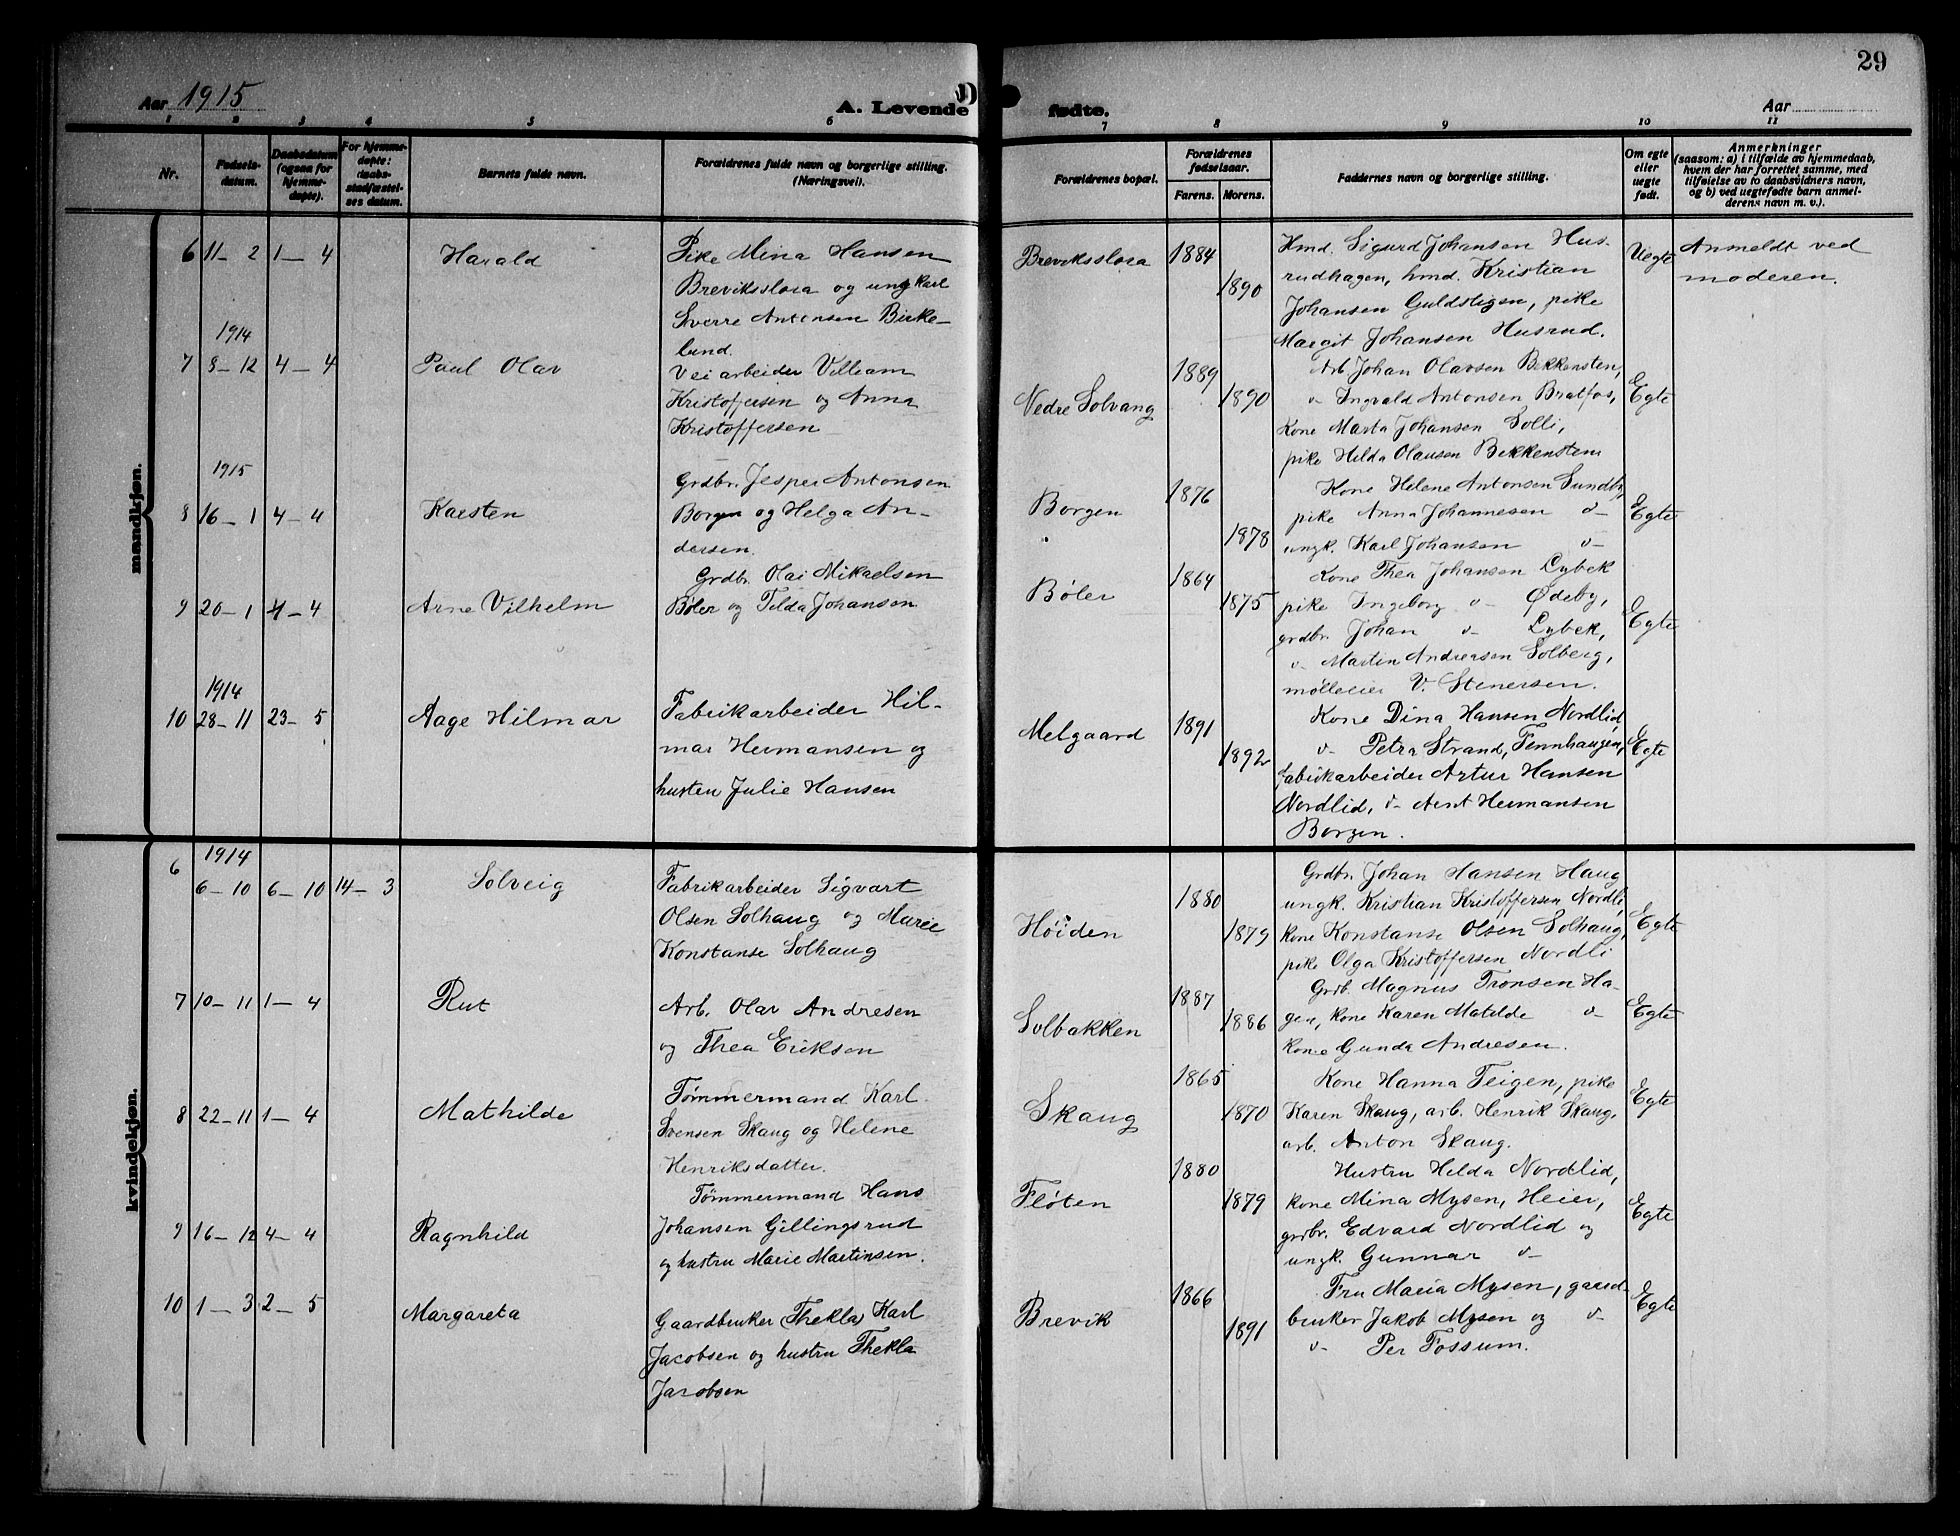 29
Aar 1915
A. Levende fødte.
Aar
1 2 3 4 5 6 7 8 9 10 11
Nr.
Fødsels-
datum.
Daabsdatum
(ogsaa for
hjemme-
døpte).
For hjemme-
døpte:
daabs-
stadfæstel-
ses datum.
Barnets fulde navn.
Forældrenes fulde navn og borgerlige stilling.
(Næringsvei).
Forældrenes bopæl.
Forældrenes
fødselsaar.
Farens. Morens.
Faddernes navn og borgerlige stilling.
Om egte
eller
uegte
født.
Anmerkninger
(saasom: a) i tilfælde av hjemmedaab,
hvem der har forrettet samme, med
tilføielse av to daabsvidners navn,
og b) ved uegtefødte barn anmel-
derens navn m. v.).
mandkjøn.
6 11-2 1-4 Harald
Pike Mina Hansen
Breviksslora og ungkarl
Sverre Antonsen Birke-
lund.
Breviksslora 1884 1890
Hmd. Sigurd Johansen Hus-
rudhagen, hmd. Kristian
Johansen Guldstigen, pike
Margit Johansen Husrud.
Uegte
Anmeldt ved
moderen.
1914
7 8-12 4-4 Paul Olav
Veiarbeider Villiam
Kristoffersen og Anna
Kristoffersen
Nedre Solvang 1889 1890
Arb. Johan Olavsen Bekkensten,
v- Ingvald Antonsen Bratfos,
Kone Marta Johansen Solli,
pike Hilda Olausen Bekkensten
Egte
1915
8 16-1 4-4 Karsten
Grdbr. Jesper Antonsen
Borgen og Helga An-
dersen.
Borgen 1876 1878
Kone Helene Antonsen Sundby,
pike Anna Johannesen v-
ungk. Karl Johansen v-
Egte
9 20-1 4-4 Arne Vilhelm
Grdbr. Olai Mikaelsen
Bøler og Tilda Johansen
Bøler 1864 1875
Kone Thea Johansen Lybek
pike Ingeborg v- Ødeby,
grdbr. Johan v- Lybek,
v- Martin Andersen Solberg,
mølleeier V. Stenersen.
Egte
1914
10 28-11 23-5 Aage Hilmar
Fabrikarbeider Hil-
mar Hermansen og
hustru Julie Hansen
Melgaard 1891 1892
Kone Dina Hansen Nordlid,
v- Petra Strand, Fennhaugen,
fabrikarbeider Artur Hansen
Nordlid, v- Arnt Hermansen
Borgen.
Egte
kvindekjøn.
1914
6 6-10 6-10 14-3 Solveig
Fabrikarbeider Sigvart
Olsen Solhaug og Marie
Konstanse Solhaug
Høiden 1880 1879
Grdbr. Johan Hansen Haug
ungk. Kristian Kristoffersen Nordli,
kone Konstanse Olsen Solhaug,
pike Olga Kristoffersen Nordli
Egte
7 10-11 1-4 Rut
Arb. Olav Andresen
og Thea Eriksen
Solbakken 1887 1886
Grdb. Magnus Tronsen Ha-
gen, kone Karen Matilde v-
kone Gunda Andresen.
Egte
8 22-11 1-4 Mathilde
Tømmermand Karl
Svensen Skaug og Helene
Henriksdatter.
Skaug 1865 1870
Kone Hanna Teigen, pike
Karen Skaug, arb. Henrik Skaug,
arb. Anton Skaug.
Egte
9 16-12 4-4 Ragnhild
Tømmermand Hans
Johansen Gillingsrud
og hustru Marie Martinsen.
Fløten 1880 1879
Hustru Hilda Nordlid,
kone Mina Mysen, Heier,
grdbr. Edvard Nordlid og
ungk. Gunnar v-
Egte
10 1-3 2-5 Margareta
Gaardbruker (Thekla) Karl
Jacobsen og hustru Thekla
Jacobsen
Brevik 1866 1891
Fru Maria Mysen, gaard-
bruker Jakob Mysen og v-
v- Per Fossum.
Egte